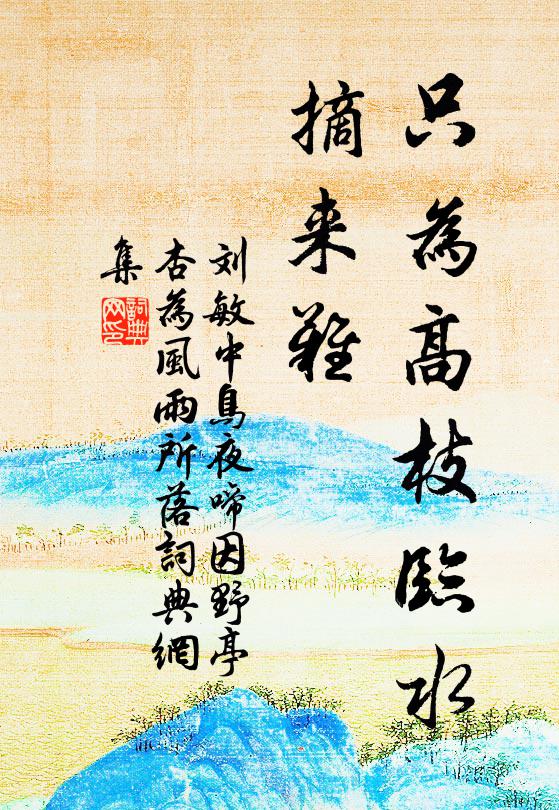 只為高枝臨水
摘来難
刘敏中鳥夜啼因野亭
杏為風雨所落詞典網
集
詞典
网印